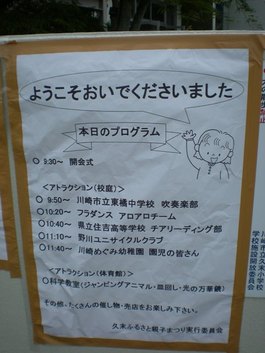 ようこそおいでくださいました
本日のプログラム
○ 9:30～ 開会式
＜アトラクション（校庭）＞
○ 9:50～ 川崎市立東橘中学校 吹奏楽部
○10:20～ フラダンス アロアロチーム
○10:40～ 県立住吉高等学校 チアリーディング部
○11:10～ 野川ユニサイクルクラブ
○11:40～ 川崎めぐみ幼稚園 園児の皆さん
＜アトラクション（体育館）＞
○科学教室（ジャンピングアニマル・皿回し・光の万華鏡）
その他、たくさんの催し物・売店をお楽しみ下さい。
久末ふるさと親子まつり実行委員会
川崎市立久末小学校
学校施設開放委員会